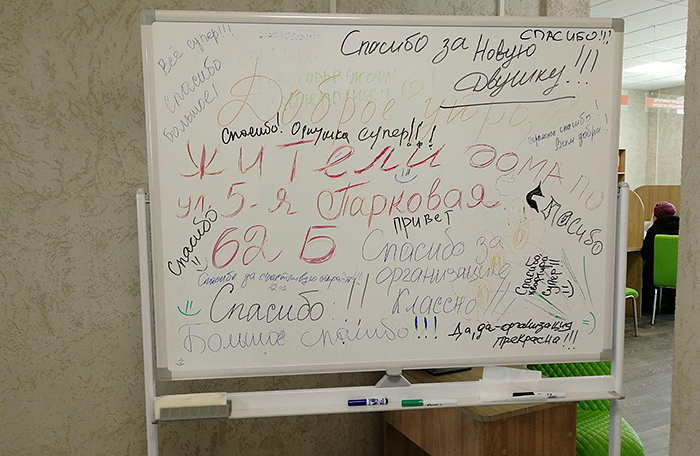 Всё супер!!!
СПАСИБО!!!
Спасибо за Новую
Двушку!!!
Спасибо
большое!
Доброе утро
Спасибо! Однушка супер!!!
огромное спасибо
Вам добра!
жители дома по
ул. 5-я Парковая
62 Б
Спасибо
Привет
Спасибо
Спасибо за
организацию
Классно!!!
Спасибо
квартира
супер!!
Спасибо за счастливую
Спасибо!!!
Большое спасибо!!!
Да, да-организация
прекрасна!!!